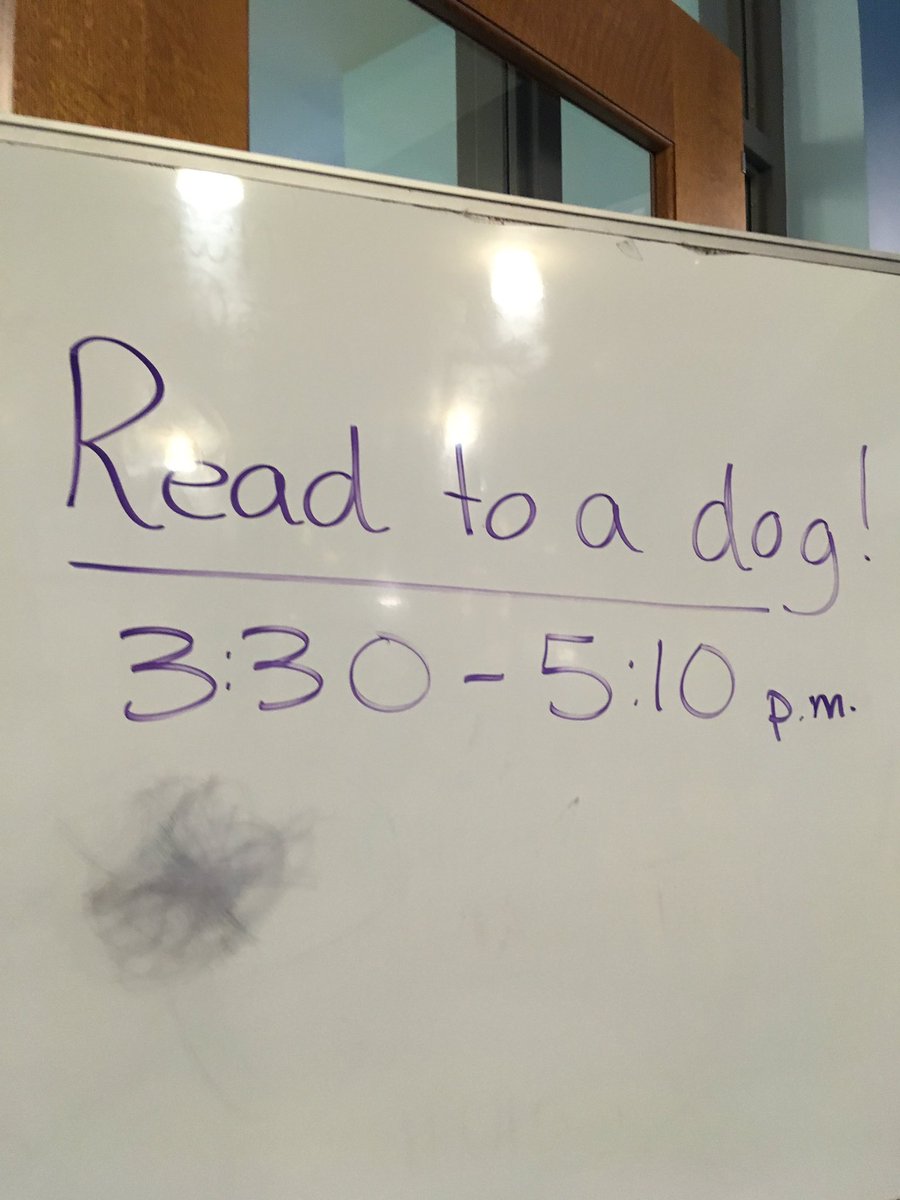 Read to a dog!
3:30 - 5:10 p.m.